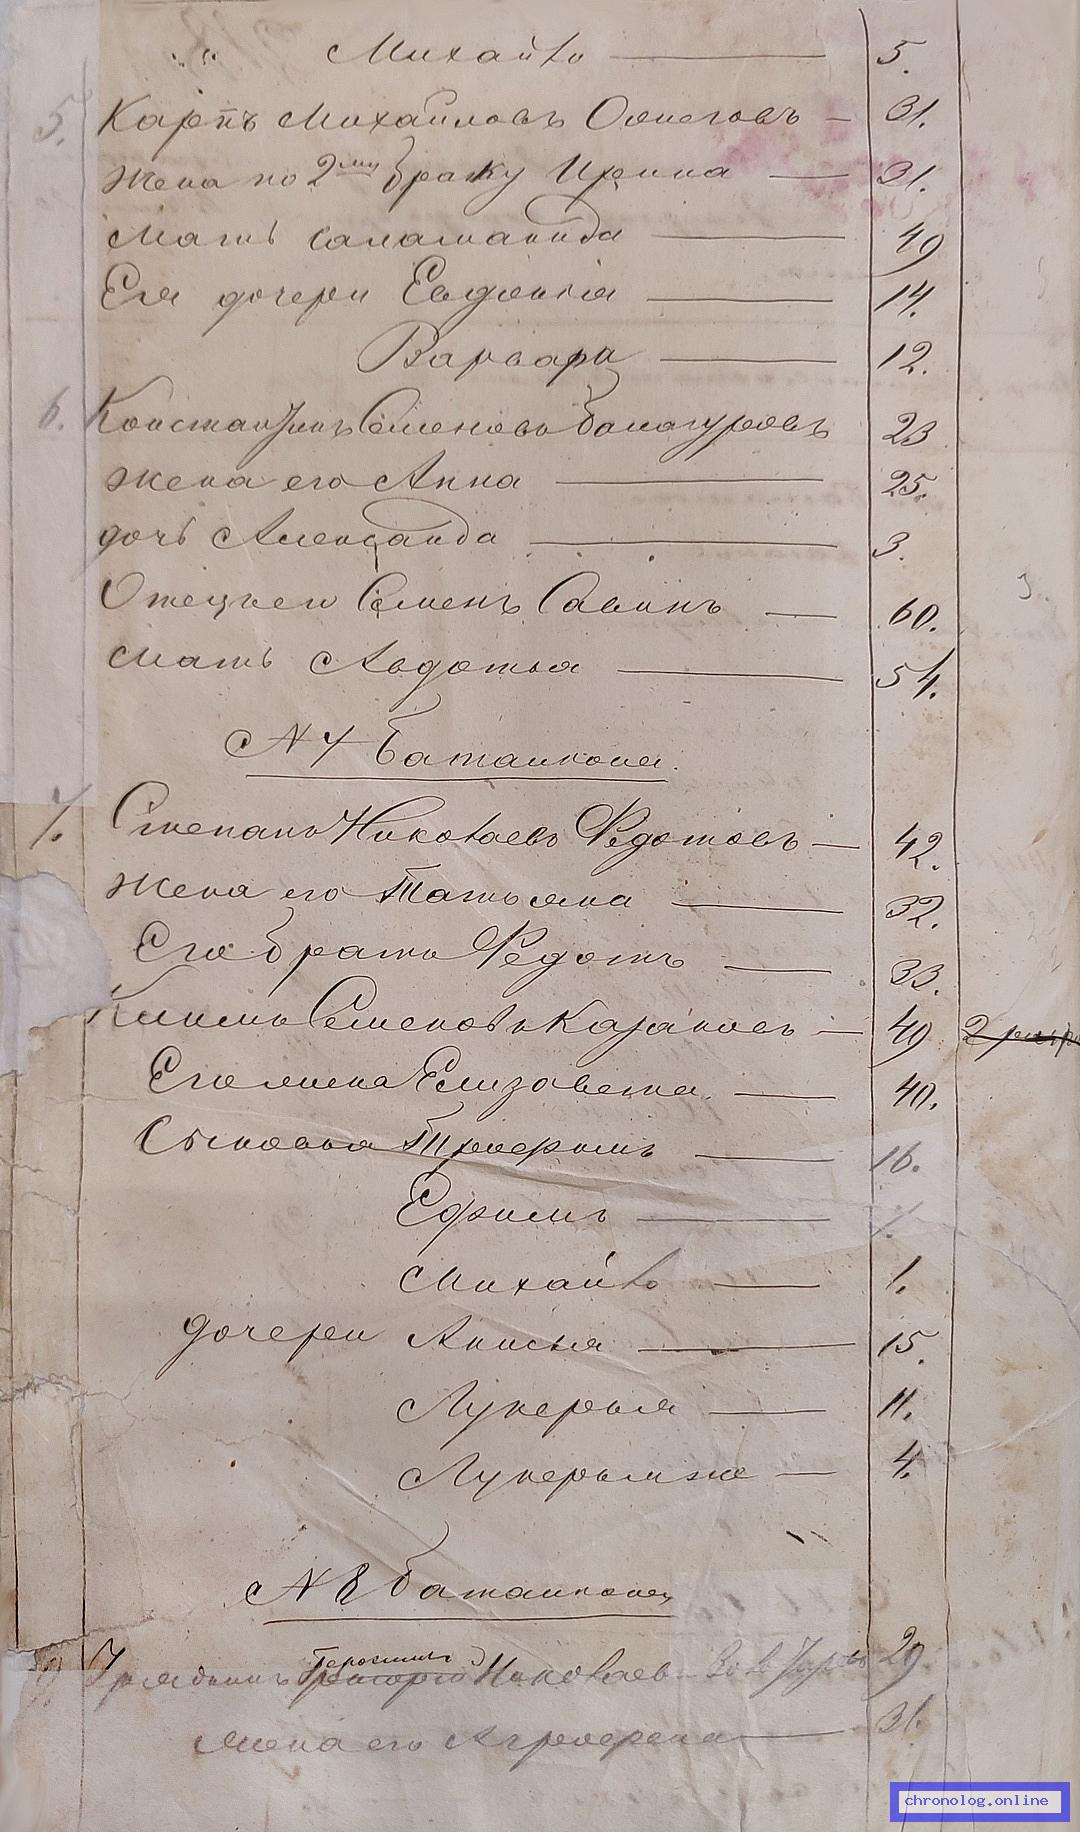 " " Михайло 5.
5. Карпъ Михайловъ Ознеговъ 31.
Жена по 2му браку Ирина 31.
Мать Саламанида 49
Ея дочери Евдокія 14.
Варвара 12.
6. Константинъ Семеновъ Балагуровъ 23
Жена его Анна 25.
дочь Александа 3.
Отец его Семенъ Савинъ 60.
Мать Авдотья 54.
N 7 баталиона.
7. Степанъ Николаевъ Федотовъ 42.
Жена его Татьяна 32.
Его братъ Федотъ 33.
Климъ Семеновъ Казаковъ 49
Его жена Елизавета 40.
Сыновья Трофимъ 16.
Ефимъ 7.
Михайло 1.
дочери Анисья 15.
Лукерья 11.
Лукерья же 4.
N 8 баталиона
Герасимъ
Урядникъ Григорій Николаев 29.
Жена его Агрофена 31.
chronolog.online